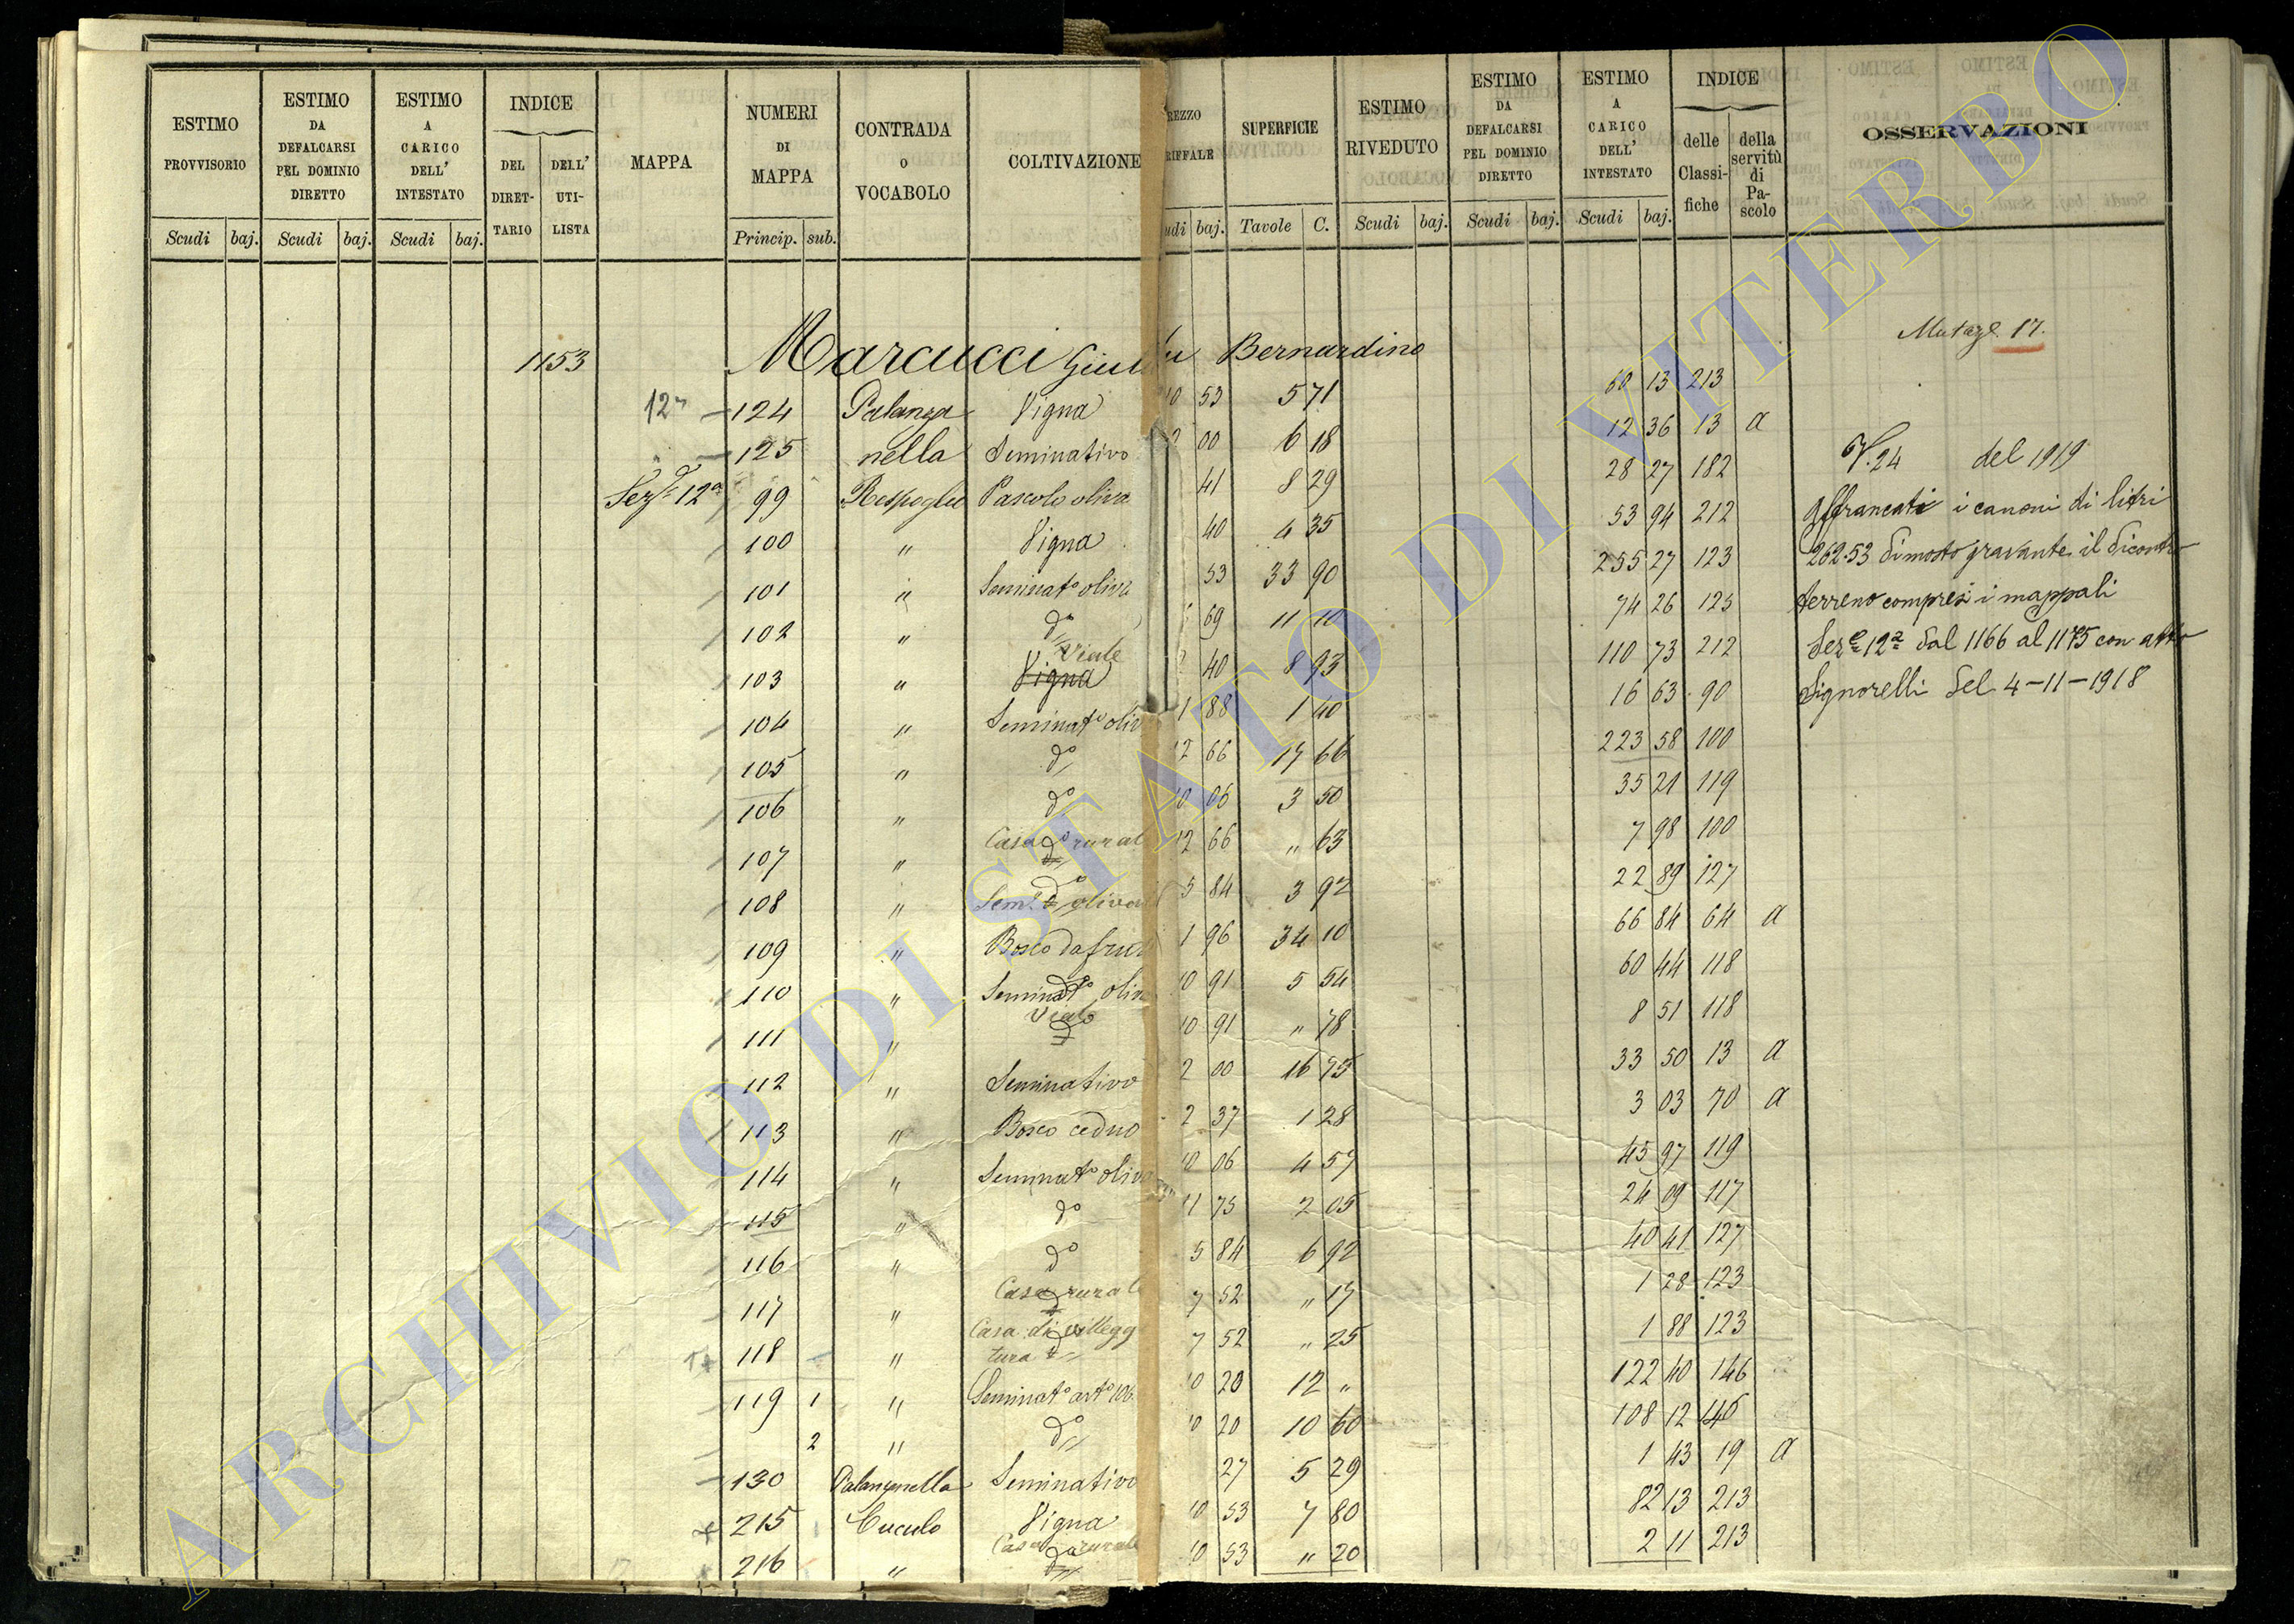 ESTIMO PROVVISORIO | ESTIMO DA DEFALCARSI PEL DOMINIO DIRETTO | ESTIMO A CARICO DELL' INTESTATO | INDICE DEL DIRET-TARIO | DELL' UTI-LISTA | MAPPA | NUMERI DI MAPPA | CONTRADA O VOCABOLO | COLTIVAZIONE | REZZO RIFFALE | SUPERFICIE | ESTIMO RIVEDUTO | ESTIMO DA DEFALCARSI PEL DOMINIO DIRETTO | ESTIMO A CARICO DELL' INTESTATO | INDICE delle Classi-fiche | della servitù di Pa-scolo | OSSERVAZIONI
Scudi baj. Scudi baj. Scudi baj. Princip. sub. udi baj. Tavole C. Scudi baj. Scudi baj. Scudi baj.
Mutaz. 17.
1153 Marcucci Bernardino
12 124 Palanza Vigna 10 53 5 71 60 13 213
125 nella Seminativo 2 00 6 18 12 36 13 a
Sez 12a 99 Pascolo oliva 41 8 29 28 27 182
100 " Vigna 40 4 35 53 94 212
101 " Seminato oliva 53 33 90 255 27 123
102 " do 69 11 10 74 26 123
103 " Viale Vigna 40 8 93 110 73 212
104 " Seminato oliv 1 88 1 40 16 63 90
105 " do 12 66 17 66 223 58 100
106 " do 10 06 3 50 35 21 119
107 " Casa rural do 12 66 " 63 7 98 100
108 " Sem. do olivat 5 84 3 92 22 89 127
109 " Bosco da frut 1 96 34 10 66 84 64 a
110 " Seminato oliv 10 91 5 54 60 44 118
111 " Viale do 10 91 " 78 8 51 118
112 " Seminativo 2 00 16 75 33 50 13 a
113 " Bosco ceduo 2 37 1 28 3 03 70 a
114 " Seminato oliva 10 06 4 57 45 97 119
115 " do 11 75 2 05 24 09 117
116 " do 5 84 6 92 40 41 127
117 " Casa rural 7 52 " 17 1 28 123
118 " Casa di villegg tura 7 52 " 25 1 88 123
119 1 " Seminato art 10 20 12 " 122 40 146
2 " do 10 20 10 60 108 12 146
130 Palanzanella Seminativo 27 5 29 1 43 19 a
215 Cuculo Vigna 10 53 7 80 82 13 213
216 " Casa rurale do 10 53 " 20 2 11 213
V. 24 del 1919
Affrancati i canoni di litri
262.53 di mosto gravante il dicontro
terreno compresi i mappali
Sez 12a dal 1166 al 1175 con atto
Signorelli del 4-11-1918
ARCHIVIO DI STATO DI VITERBO